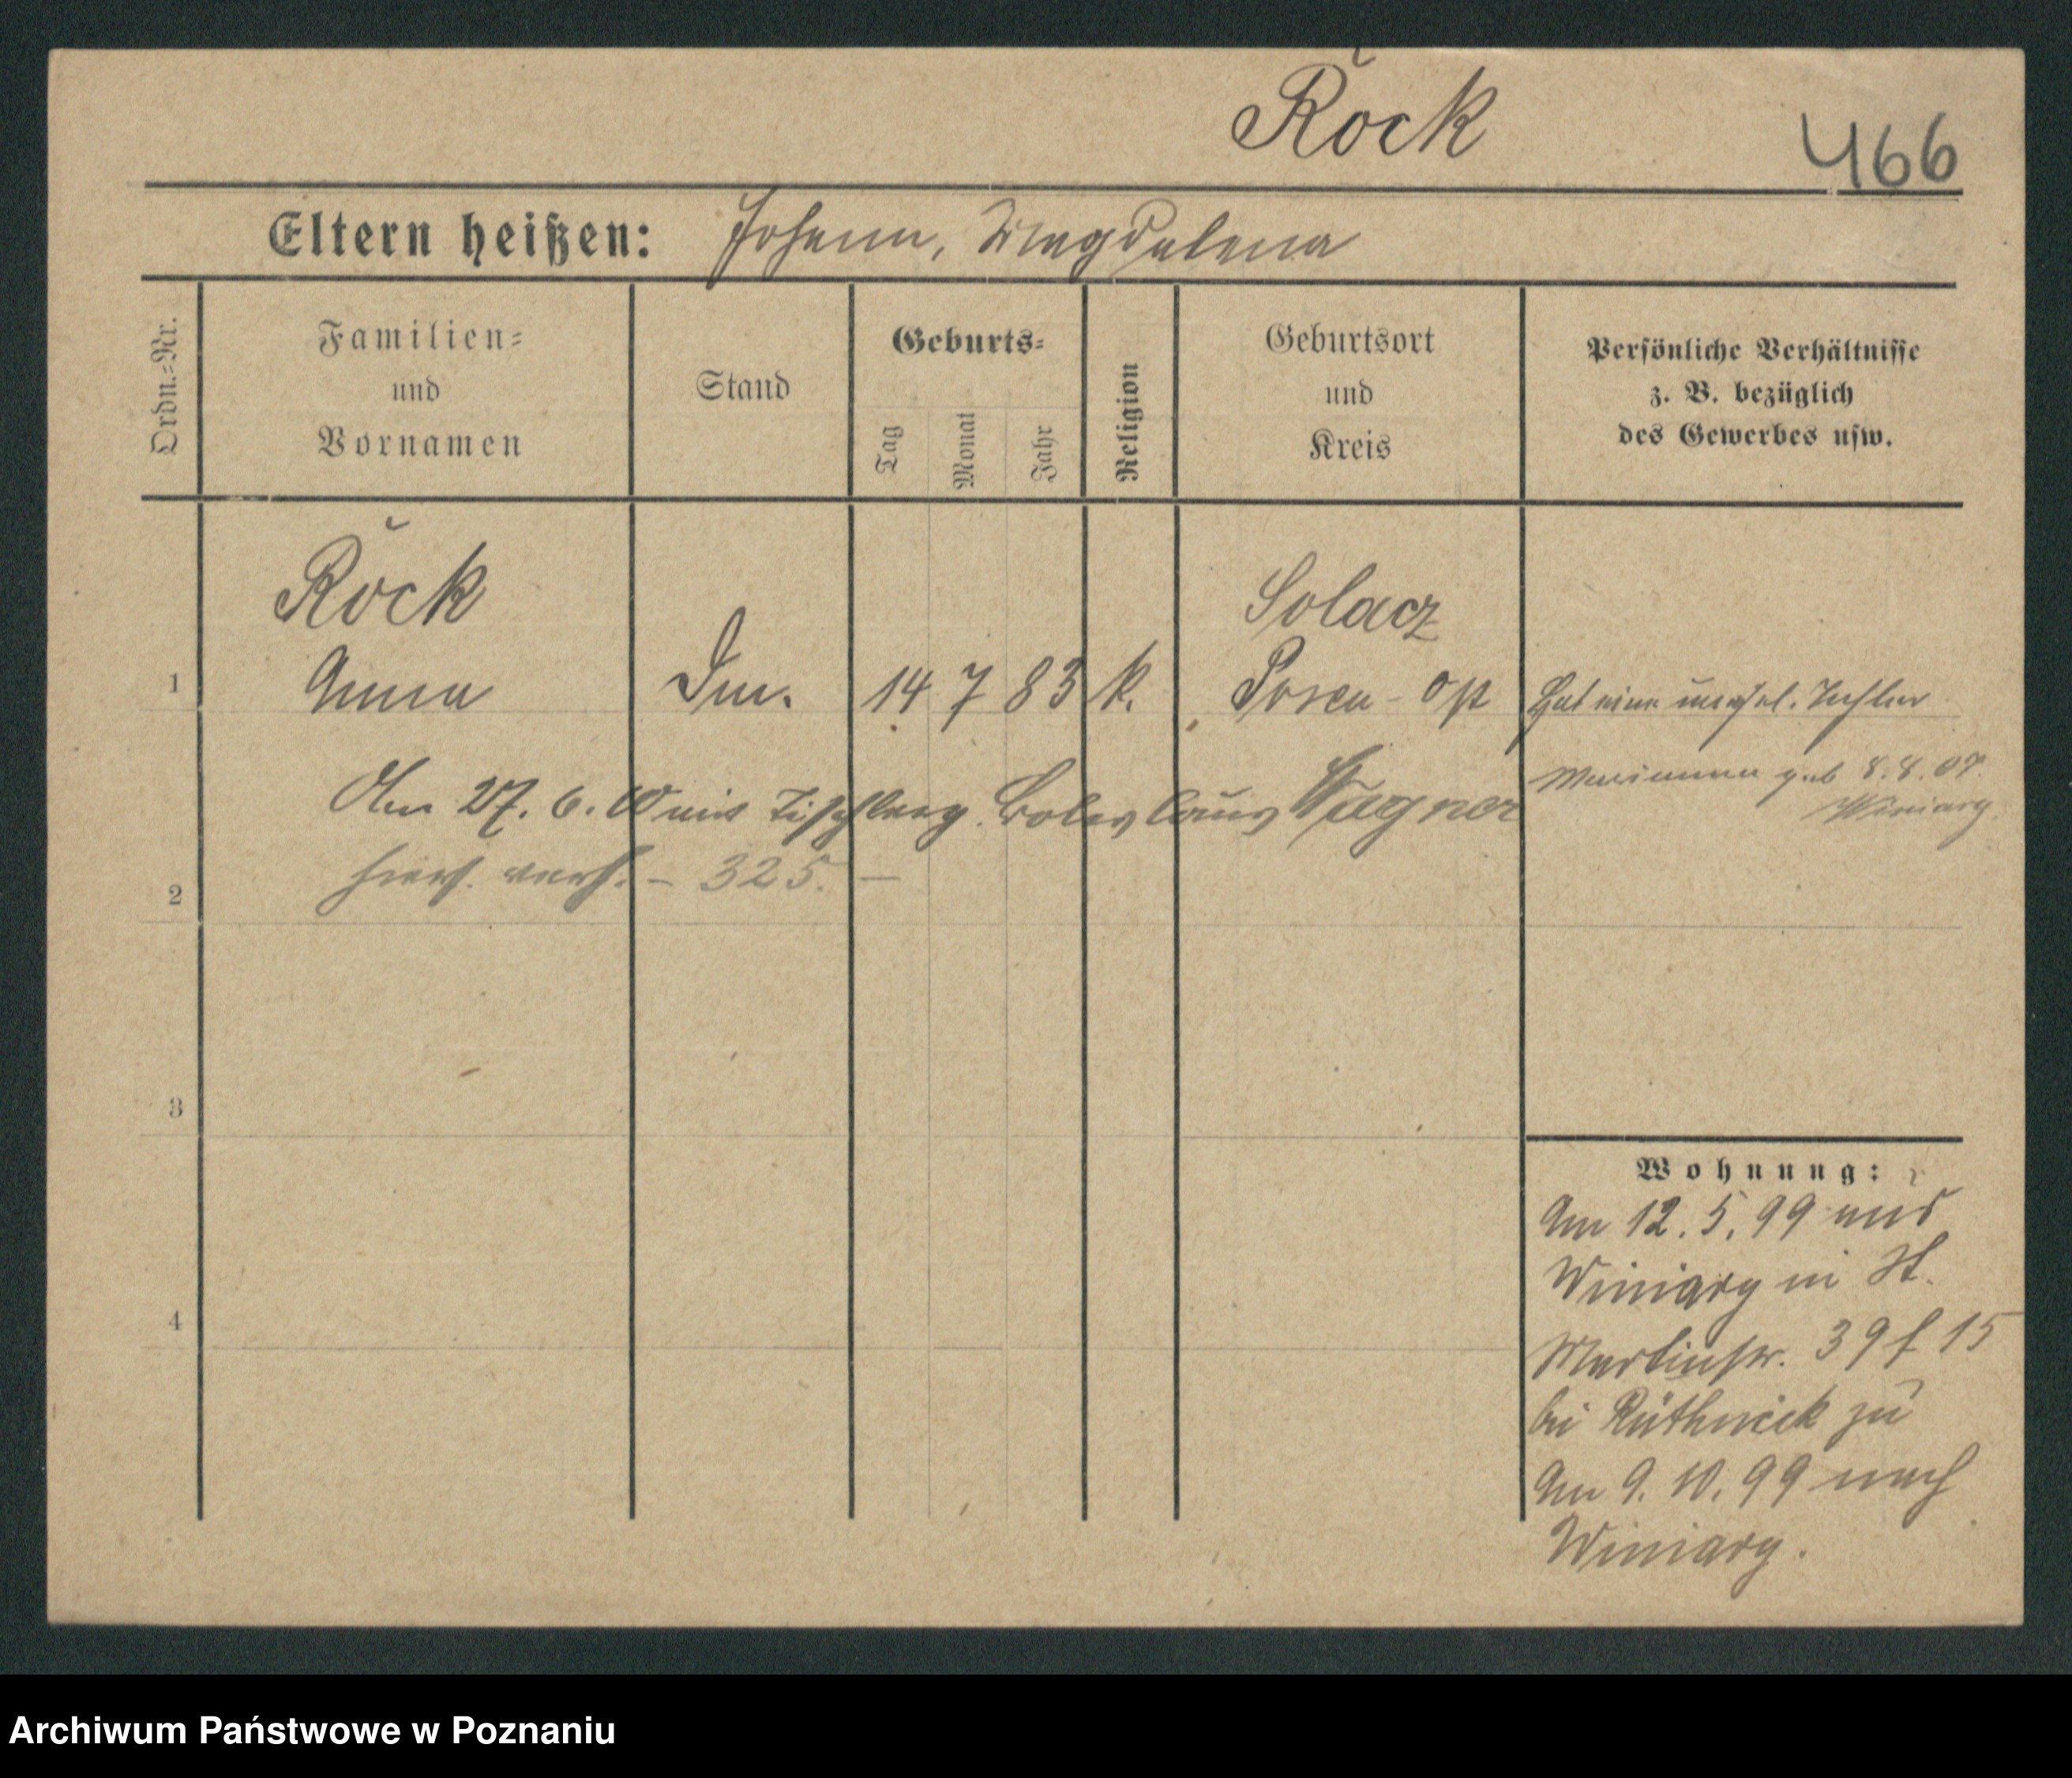 Röck
466
Eltern heißen: Johann, Magdalena
Ordn.=Nr.
Familien=
und
Vornamen
Stand
Geburts=
Tag
Monat
Jahr
Religion
Geburtsort
und
Kreis
Persönliche Verhältnisse
z. B. bezüglich
des Gewerbes usw.
Röck
Solacz
1 Anna 14 7 83 k. Posen - Ost Hat eine unehel. Tochter
Marianna geb 8.8.07.
Winiary
Am 27. 6. 10 mit Tischlerg. Boleslaus Wagner
2 hiers. verh. - 325. -
3
Wohnung:
Am 12. 5. 99 aus
Winiary in St.
4
Martinstr. 39 f 15
bei zu
Am 9. 10. 99 nach
Winiary.
Archiwum Państwowe w Poznaniu